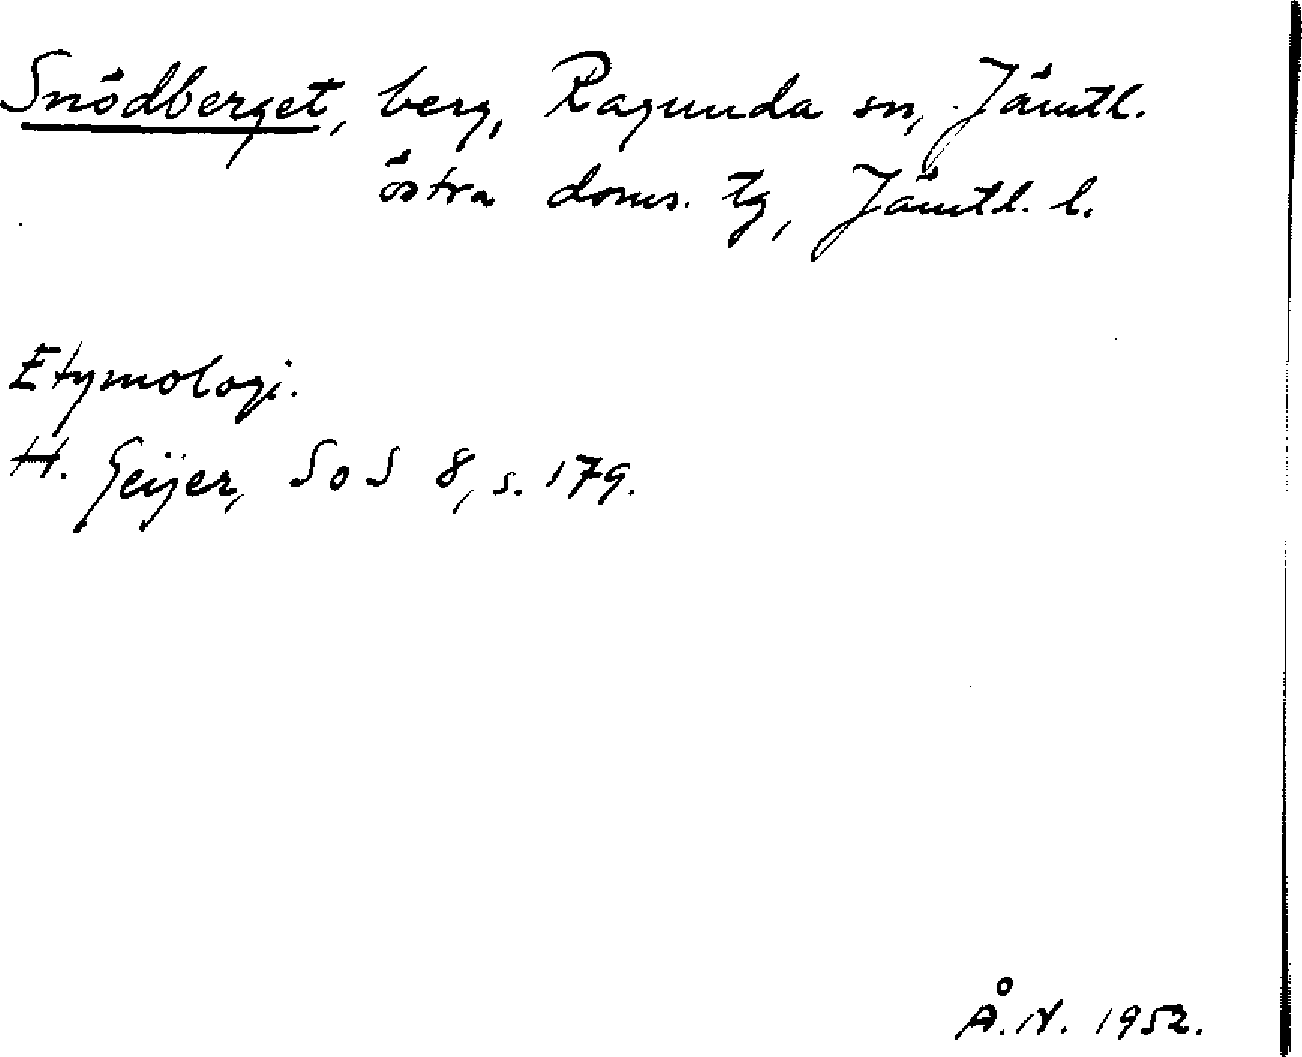 Snödberget, berg, Ragunda sn, Jämtl.
östra doms. tg, Jämtl. l.
Etymologi.
H. Geijer, SoS 8, s. 179.
Å.N. 1952.